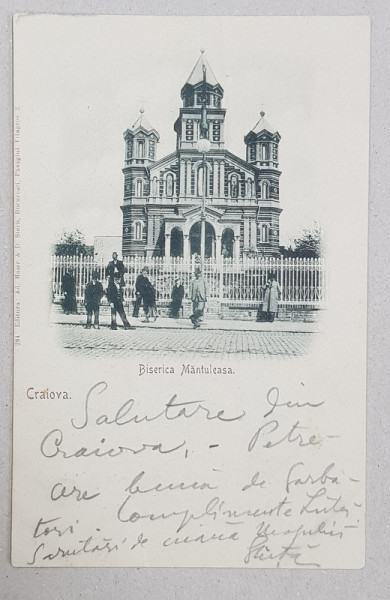 284 Editura Ad. Maier & D. Stern, Bucuresci, Passagiul Villagros 2
Biserica Mântuleasa.
Craiova.
Salutare din
Craiova, - Petre-
cere bună de Sarbă-
tori. Complimente
Sarutări de mână